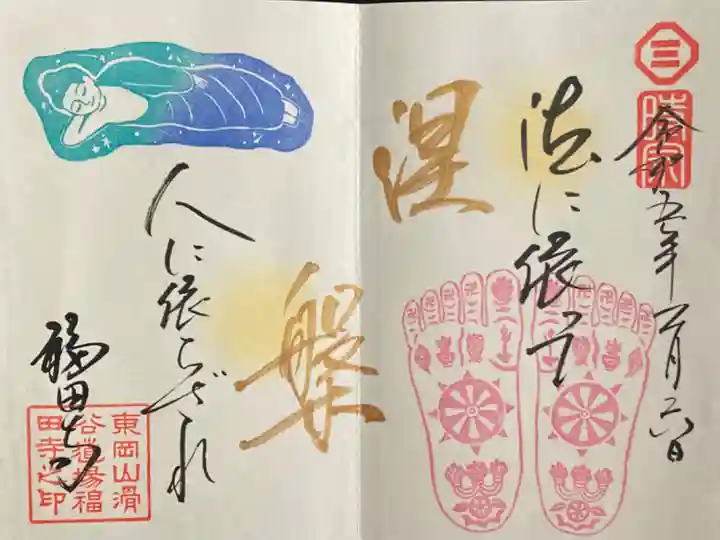 三
令和五年二月六日
法に依って
涅
槃
人に依らざれ
福田寺
東岡山滑
谷道場福
田寺之印